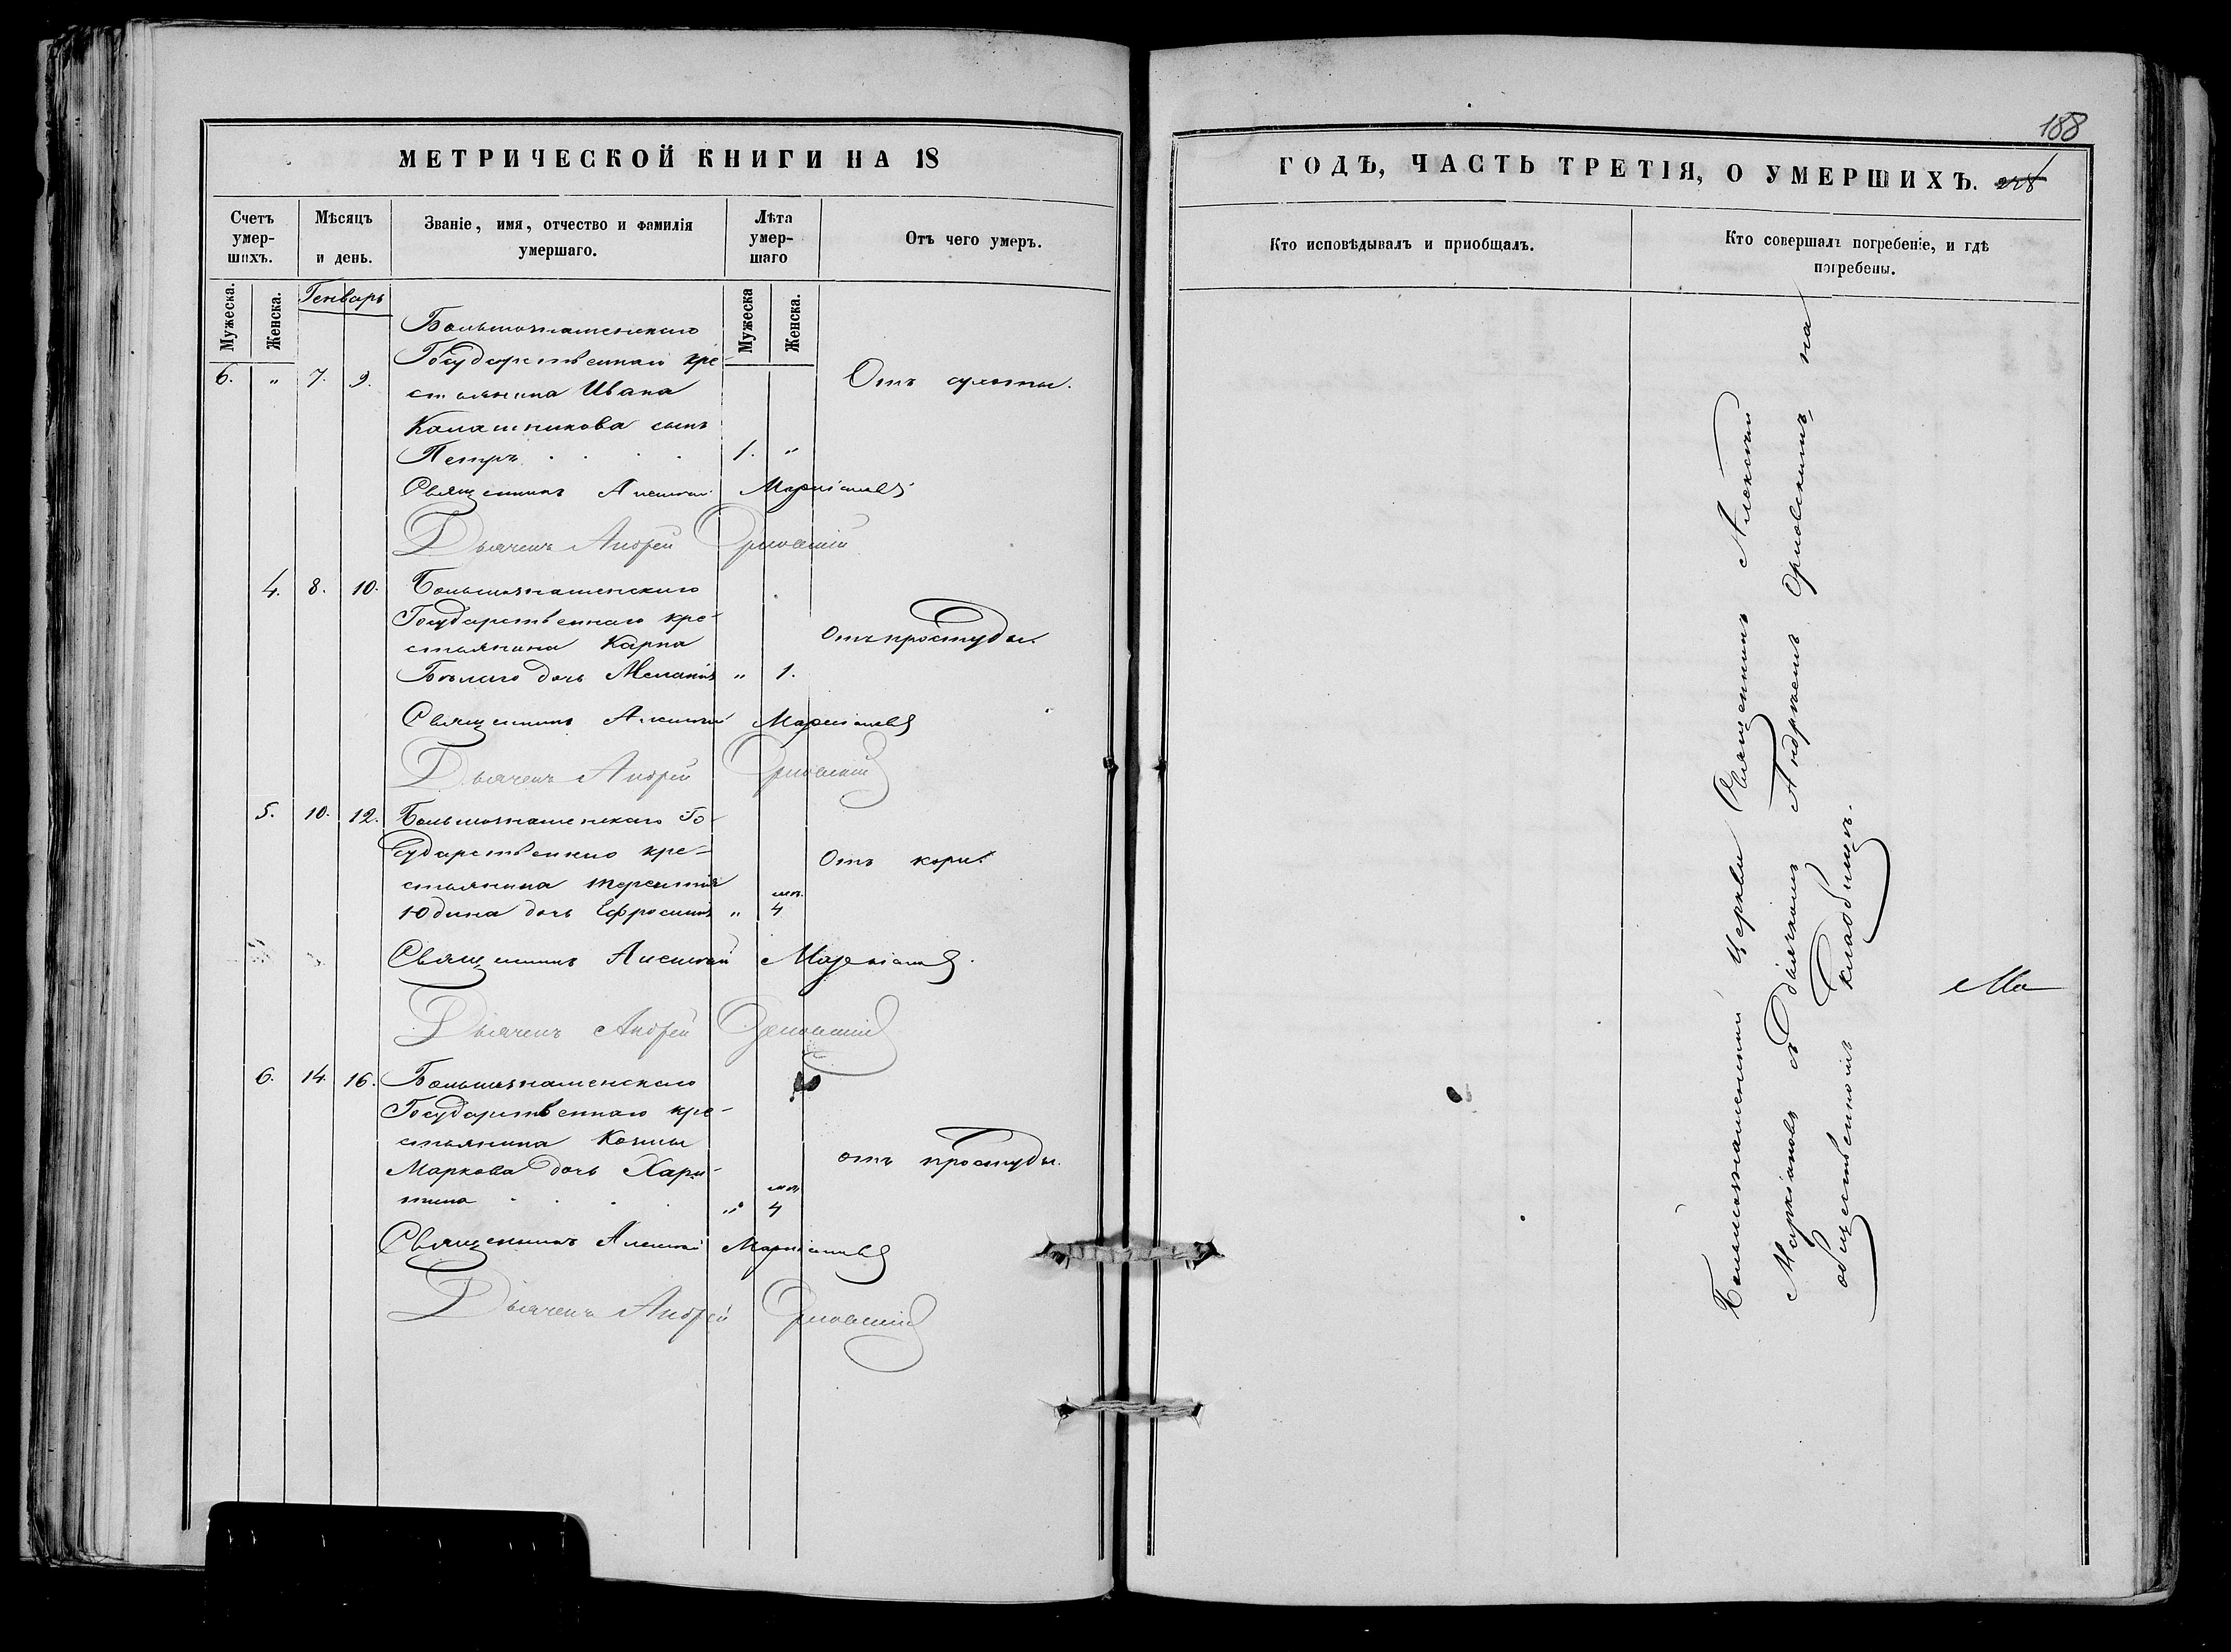 МЕТРИЧЕСКОЙ КНИГИ НА 18
Счетъ умер-шихъ.
Мѣсяцъ и день.
Званіе, имя, отчество и фамилія умершаго.
Лѣта умер-шаго
Отъ чего умеръ.
Мужеска.
Женска.
Генварь
Мужеска
Женска.
Большознаменскаго
Государственнаго кре-
6. " 7. 9. стьянина Ивана
Отъ
Калашникова сынъ
Петръ . . . . 1. "
Священникъ Алексій Маркіановъ
Дьячекъ Андрей Орловскій
4. 8. 10. Большознаменскаго
Государственнаго кре-
стьянина Карпа
отъ простуды.
Бѣлаго дочь Меланія " 1.
Священникъ Алексій Маркіановъ
Дьячекъ Андрей Орловскій
5. 10. 12. Большознаменскаго Го-
сударственнаго кре-
Отъ кори.
стьянина Терентія
Юдина дочь Ефросинія " 4 мѣ.
Священникъ Алексѣй Маркіановъ
Дьячекъ Андрей Орловскій
6. 14. 16. Большознаменскаго
Государственнаго кре-
стьянина Козмы
отъ простуды.
Маркова дочь Хари-
тина . . . . " 4 мѣ.
Священникъ Алексій Маркіановъ
Дьячекъ Андрей Орловскій
188
ГОДЪ, ЧАСТЬ ТРЕТІЯ, О УМЕРШИХЪ.
Кто исповѣдывалъ и приобщалъ.
Кто совершалъ погребеніе, и гдѣ погребены.
Большознаменской Церкви Священникъ Алексій
Маркіановъ съ Дьячкомъ Андреемъ Орловскимъ, на
общественномъ кладбищѣ.
Ма